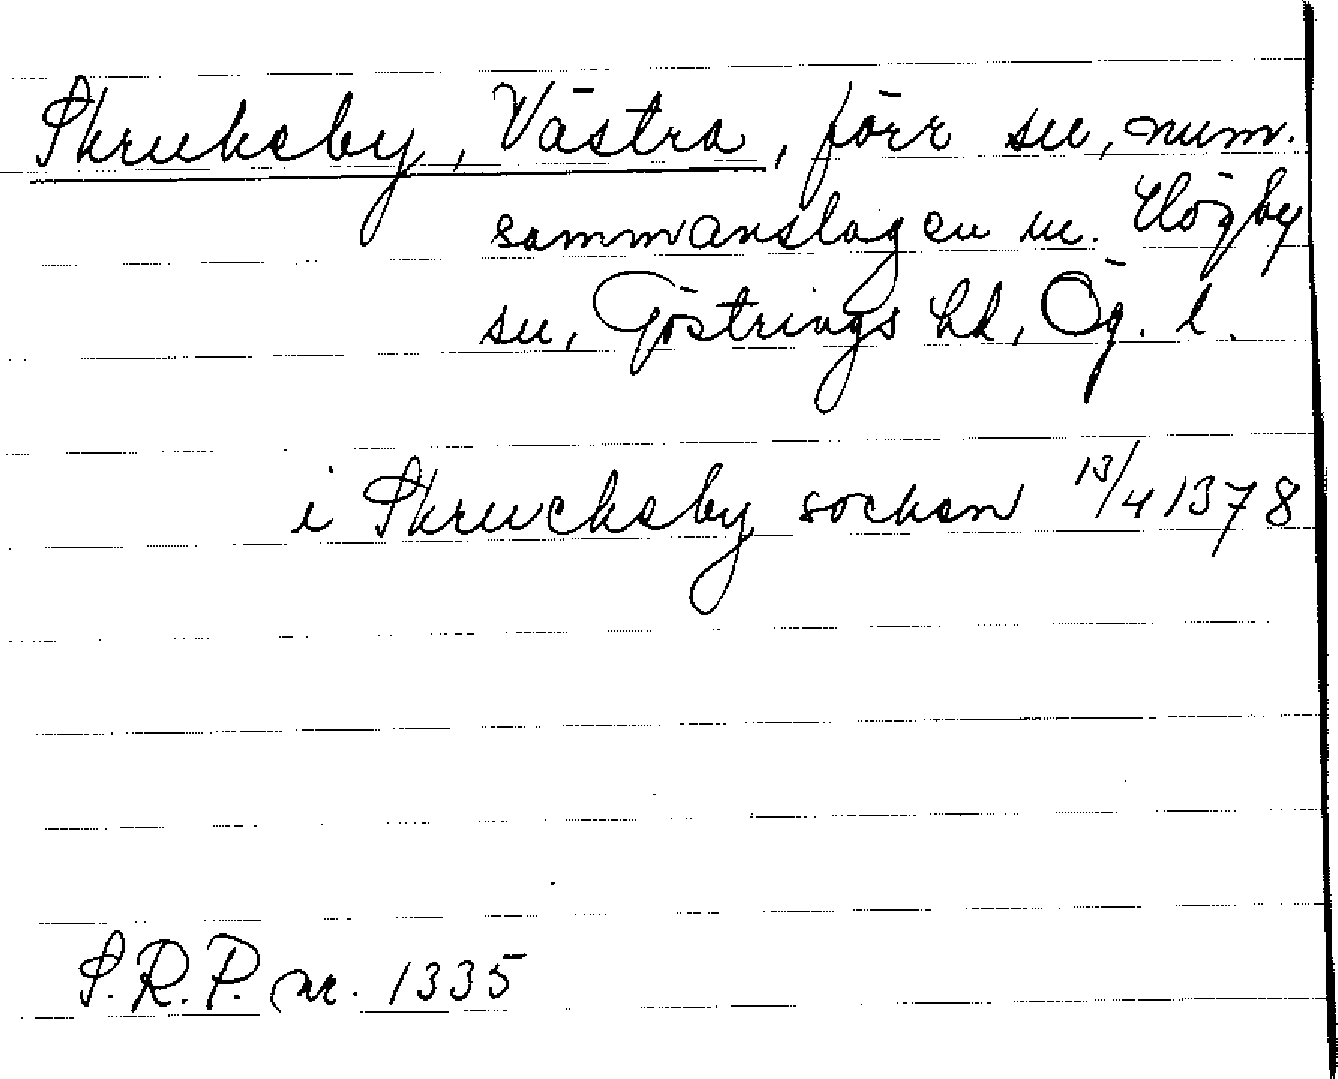 Skruksby, Västra, förr sn, num.
sammanslagen m. Högby
sn, Göstrings hd, Ög. l.
i Skrucksby socken 13/4 1378
S.R.P. nr. 1335